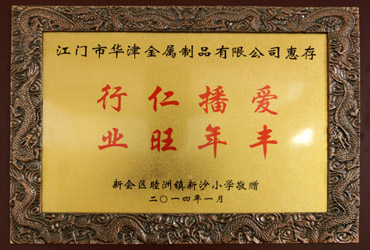 江门市华津金属制品有限公司惠存
行仁播爱
业旺年丰
新会区睦洲镇新沙小学敬赠
二〇一四年一月